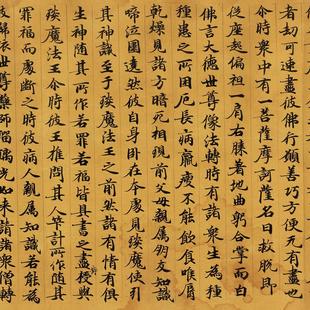 者劫可速盡彼佛行願善巧方便无有盡也
尒時衆中有一菩薩摩訶薩名曰救脫即
從座起偏袒一肩右膝著地曲躬合掌而白
佛言大德世尊像法轉時有諸衆生為種
種患之所困厄長病羸瘦不能飲食喉脣
乾燥見諸方暗死相現前父母親属朋友知識
啼泣圍遶然彼自身卧在本處見琰魔使引
其神識至于琰魔法王之前然諸有情有俱
生神随其所作若罪若福皆具書之盡持授與
琰魔法王尒時彼王推問其人筭計所作随其
罪福而處斷之時彼病人親属知識若能為
彼歸依世尊藥師瑠璃光如来請諸衆僧轉